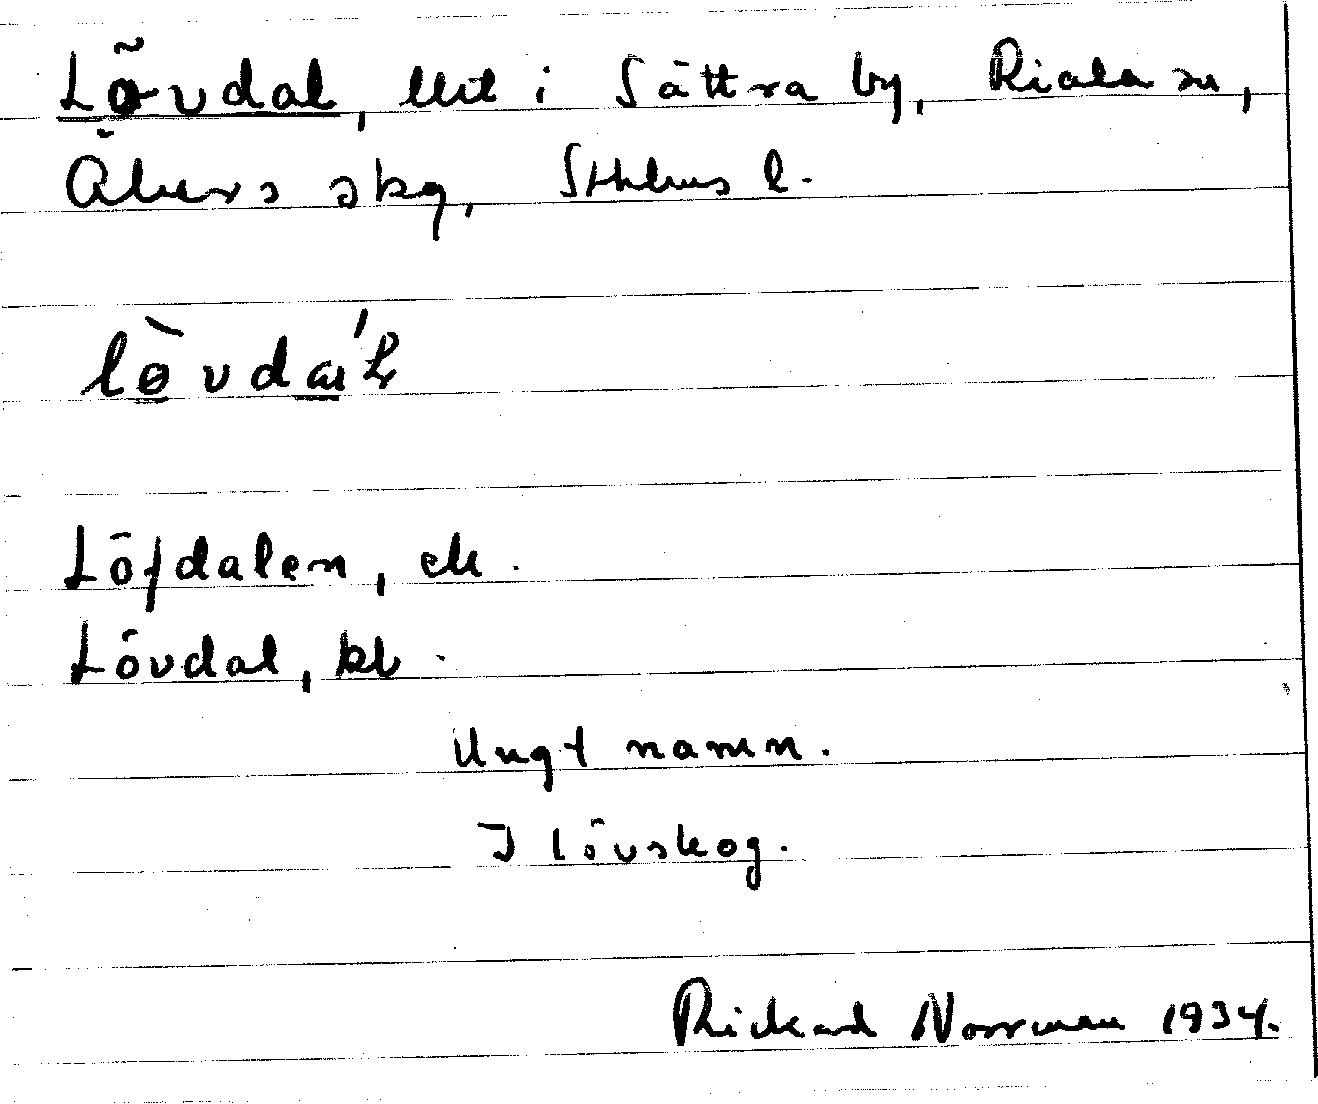 Lövdal, lht i Sättra by, Riala sn,
Åkers skg, Sthlms l.
Löfdalen, ek.
Lövdal, kb.
Ungt namn.
I lövskog.
Rickard Norrman 1934.